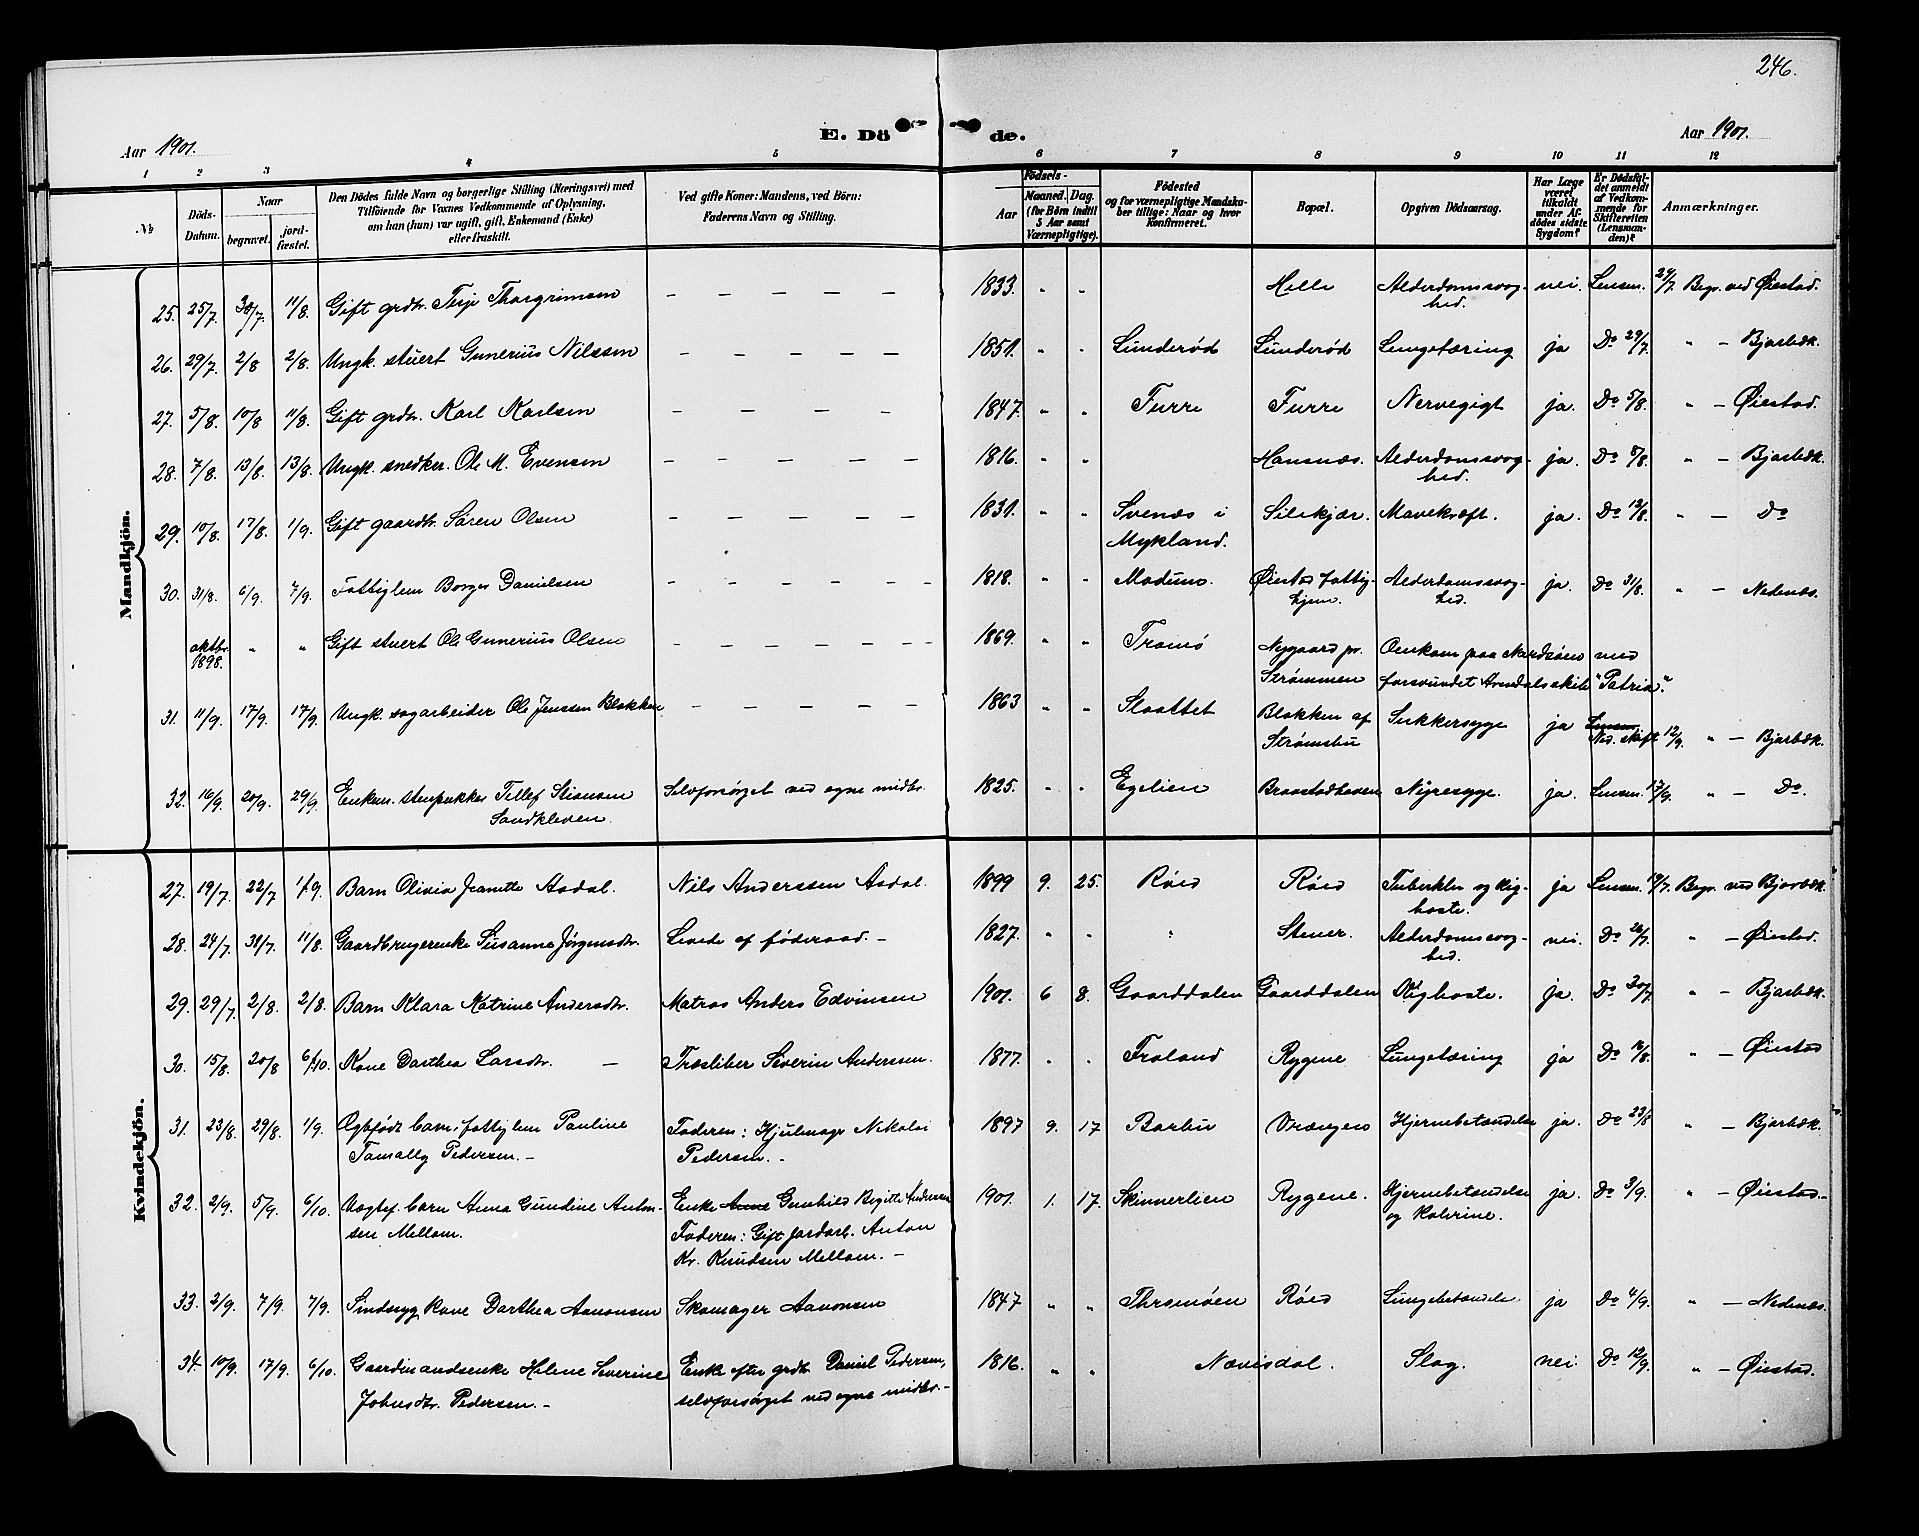 246.
Aar 1901.
E. Dö de.
Aar 1901.
1 2 3 4 5 6 7 8 9 10 11 12
№
Döds-Datum.
Naar
begravet.
jord-fæstet.
Den Dödes fulde Navn og borgerlige Stilling (Næringsvei) med
Tilföiende för Voxnes Vedkommende af Oplysning,
om han (hun) var ugift, gift, Enkemand (Enke)
eller fraskilt.
Ved gifte Koner: Mandens, ved Börn:
Faderens Navn og Stilling.
Födsels-
Aar
Maaned. Dag.
(for Börn indtil
5 Aar samt
Værnepligtige).
Födested
og for værnepligtige Mandska-
ber tillige: Naar og hvor
Konfirmeret.
Bopæl.
Opgiven Dödsaarsag.
Har Læge
været
tilkaldt
under Af-
dödes sidste
Sygdom?
Er Dödsfal-
det anmeldt
af Vedkom-
mende for
Skifteretten
(Lensman-
den)?
Anmærkninger.
Mandkjön.
25. 25/7. 30/7. 11/8. Gift grdbr. Terje Thorgrimsen — — — — — 1833. " " Helle Alderdomssvag- nei. Lensm. 27/7 Begr. ved Øiestad.
hed.
26. 29/7. 2/8 2/8. Ungk. stuert Gunerius Nilssen — — — — — 1851. " " Lunderød Lunderød Lungetæring ja Do 29/7. " — Bjorbæk.
27. 5/8. 10/8 11/8. Gift grdbr. Karl Karlsen — — — — — 1847. " " Furre Furre Nervegigt ja. Do 5/8. " — Øiestad.
28. 7/8. 13/8. 13/8. Ungk. snedker. Ole M. Evensen — — — — — 1816. " " Hansnæs. Alderdomssvag- ja. Do 8/8. " — Bjorbæk.
hed.
29. 10/8. 17/8. 1/9. Gift gaardbr. Sören Olsen — — — — — 1831. " " Svenæs i Silekjær. Mavekræft. ja. Do 12/8. " — Do
Mykland.
30. 31/8. 6/9. 7/9. Fattiglem Borger Danielsen — — — — — 1818. " " Øiestad fattig- Alderdomssvag- ja. Do 31/8. " — Nedenæs.
hjem. hed.
oktbr. 1898. " " Gift stuert Ole Gunerius Olsen — — — — — 1869. " " Tromö Nygaard pr. Omkom paa Nordsöen med
Strømmen forsvundet Arendals skib "Patria".
31. 11/9. 17/9. 17/9. Ungk. sagarbeider Ole Jenssen Blakken — — — — — 1863 Slaattet Blakken af Sukkersyge ja Lensm. Ned. skift 12/9. " — Bjorbæk.
Strømsbu
32. 16/9. 20/9. 29/9. Enkem. stenpukker Tellef Stiansen Selvforsörget ved egne midler. 1825. " " Egelien Braastadheven Nyresyge. ja. Lensm. 17/9. " — Do.
Sandkleven.
Kvindekjön.
27. 19/7. 22/7 1/9. Barn Olivia Jeanette Aadal. Nils Anderssen Aadal. 1899 9. 25. Röed Röed Tuberkler og kig- ja Lensm. 19/7. Begr. ved Bjorbæk.
hoste.
28. 24/7. 30/7. 11/8. Gaardbrugerenke Susanne Jørgensdtr. Levede af föderaad. — 1827. " " " Stener. Alderdomssvag- nei. Do 26/7. " — Øiestad.
hed.
29. 29/7. 2/8. 2/8. Barn Klara Katrine Andersdtr. Matros Anders Edvinsen 1901. 6 8. Gaarddalen Gaarddalen Kighoste. ja. Do 30/7. " — Bjorbæk.
30. 15/8. 20/8 6/10. Kone Darthea Larsdtr. — Træsliber Severin Andersen. 1877. " " Froland Rygene Lungetæring ja Do 16/8. " — Øiestad
31. 23/8. 29/8. 1/9. Ægtefödt barn, fattiglem Pauline Faderen: Hjulmager Nikolai 1897 9. 17 Barbu Vrængen Hjernebetændelse ja. Do 23/8 " — Bjorbæk.
Tomally Pedersen. — Pedersen. —
32. 2/9. 5/9. 6/10. Uægtef. barn Anna Gundine Anton- Enke Gunhild Birgitte Andersen 1901. 1. 17. Skinnerlien Rygene. Hjernebetændelse ja. Do 3/9. " — Øiestad.
sen Mellom. Faderen: Gift jordarb. Anton og Kolerine.
Kr. Knudsen Mellom. —
33. 2/9. 7/9. 7/9. Sindssyg kone Darthea Aanonsen Skomager Aanonsen 1847 " " Thromöen Röed Lungebetændelse ja Do 4/9. " — Nedenæs.
34. 10/9. 17/9. 6/10. Gaardmandsenke Helene Severine Enke efter grdbr. Daniel Pedersen, 1816. " " Nævisdal. Slag. nei. Do 12/9. " — Øiestad.
Johnsdtr. Pedersen. — selvforsörget ved egne midler. —